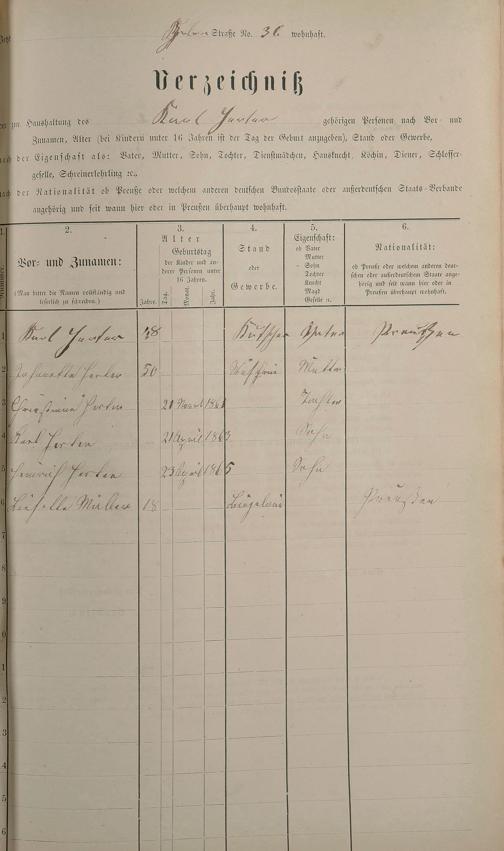 Straße No. 36. wohnhaft.
Verzeichniß
der zur Haushaltung des Karl Herter gehörigen Personen nach Vor- und
Zunamen, Alter (bei Kindern unter 16 Jahren ist der Tag der Geburt anzugeben), Stand oder Gewerbe,
nach der Eigenschaft als: Vater, Mutter, Sohn, Tochter, Dienstmädchen, Hausknecht, Köchin, Diener, Schlosser-
geselle, Schreinerlehrling ꝛc.,
nach der Nationalität ob Preuße oder welchem anderen deutschen Bundesstaate oder außerdeutschen Staats-Verbande
angehörig und seit wann hier oder in Preußen überhaupt wohnhaft.
1. 2. 3. 4. 5. 6.
Nummer.
Vor- und Zunamen:
(Man bittet die Namen vollständig und
leserlich zu schreiben.)
Alter
Jahre.
Geburtstag
der Kinder und an-
derer Personen unter
16 Jahren.
Tag. Monat. Jahr.
Stand
oder
Gewerbe.
Eigenschaft:
ob Vater
Mutter
- Sohn
Tochter
Knecht
Magd
Geselle ꝛc.
Nationalität:
ob Preuße oder welchem anderen deut-
schen oder außerdeutschen Staate ange-
hörig und seit wann hier oder in
Preußen überhaupt wohnhaft.
1 Karl Herter 48 Kutscher Vater Preußen
2 Herter 50 Mutter
3 Christiane Herter 21 1861 Tochter
4 Karl Herter 21 April 1863 Sohn
5 Heinrich Herter 23 April 1865 Sohn
6 Müller 18 Büglerin Preußen
7
8
9
0
1
2
3
4
5
6